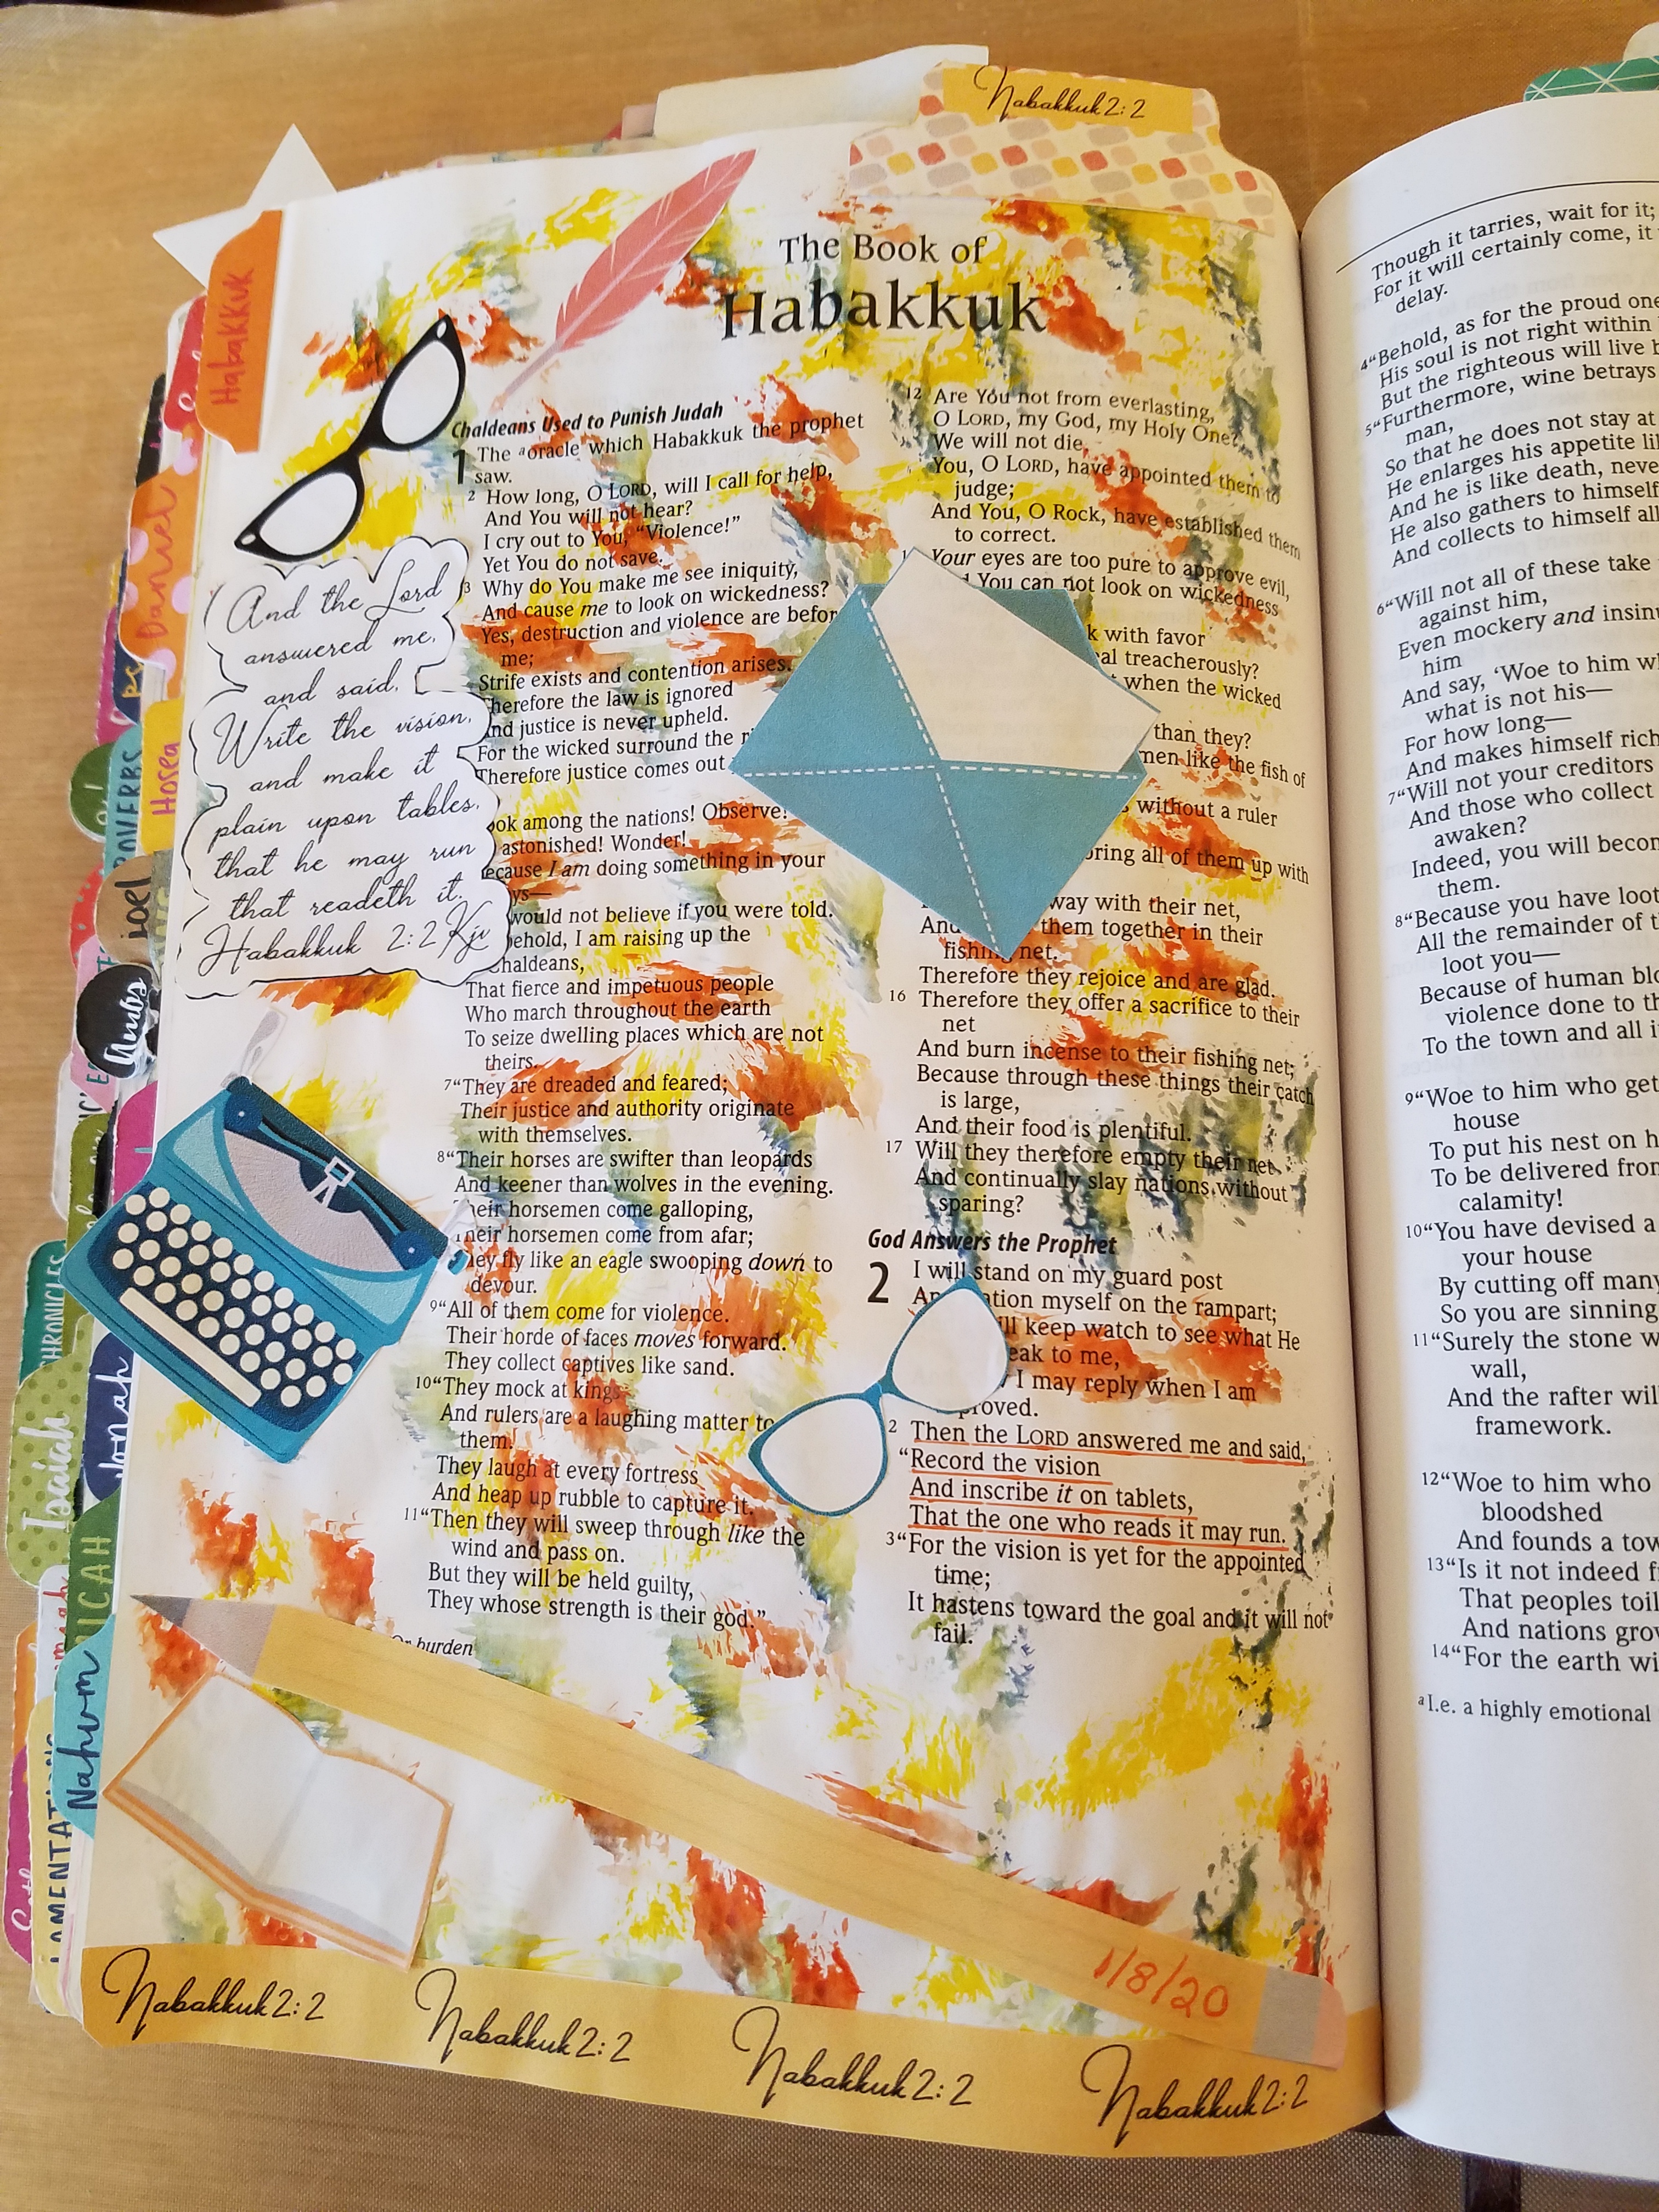 Habakkuk 2:2
The Book of
Habakkuk
Habakkuk
Daniel
Hosea
PROVERBS
Joel
Amos
CHRONICLES
Isaiah
Jonah
MICAH
Nahum
LAMENTATIONS
And the Lord
answered me,
and said,
Write the vision,
and make it
plain upon tables,
that he may run
that readeth it.
Habakkuk 2:2 Kjv
Chaldeans Used to Punish Judah
1 The a oracle which Habakkuk the prophet
saw.
2 How long, O LORD, will I call for help,
And You will not hear?
I cry out to You, “Violence!”
Yet You do not save.
3 Why do You make me see iniquity,
And cause me to look on wickedness?
Yes, destruction and violence are befor
me;
Strife exists and contention arises.
herefore the law is ignored
nd justice is never upheld.
For the wicked surround the
Therefore justice comes out
ook among the nations! Observe!
astonished! Wonder!
ecause I am doing something in your
ys—
would not believe if you were told.
behold, I am raising up the
Chaldeans,
That fierce and impetuous people
Who march throughout the earth
To seize dwelling places which are not
theirs.
7 “They are dreaded and feared;
Their justice and authority originate
with themselves.
8 “Their horses are swifter than leopards
And keener than wolves in the evening.
heir horsemen come galloping,
heir horsemen come from afar;
hey fly like an eagle swooping down to
devour.
9 “All of them come for violence.
Their horde of faces moves forward.
They collect captives like sand.
10 “They mock at kings
And rulers are a laughing matter to
them.
They laugh at every fortress
And heap up rubble to capture it.
11 “Then they will sweep through like the
wind and pass on.
But they will be held guilty,
They whose strength is their god.”
Or burden
12 Are You not from everlasting,
O LORD, my God, my Holy One?
We will not die.
You, O LORD, have appointed them to
judge;
And You, O Rock, have established them
to correct.
Your eyes are too pure to approve evil,
You can not look on wickedness
with favor
al treacherously?
when the wicked
than they?
men like the fish of
without a ruler
bring all of them up with
way with their net,
And them together in their
fishing net.
Therefore they rejoice and are glad.
16 Therefore they offer a sacrifice to their
net
And burn incense to their fishing net;
Because through these things their catch
is large,
And their food is plentiful.
17 Will they therefore empty their net
And continually slay nations without
sparing?
God Answers the Prophet
2 I will stand on my guard post
And ation myself on the rampart;
ill keep watch to see what He
eak to me,
I may reply when I am
proved.
2 Then the LORD answered me and said,
“Record the vision
And inscribe it on tablets,
That the one who reads it may run.
3 “For the vision is yet for the appointed
time;
It hastens toward the goal and it will not
fail.
1/8/20
Habakkuk 2:2 Habakkuk 2:2 Habakkuk 2:2 Habakkuk 2:2
Though it tarries, wait for it;
For it will certainly come, it
delay.
4 “Behold, as for the proud one
His soul is not right within
But the righteous will live
5 “Furthermore, wine betrays
man,
So that he does not stay at
He enlarges his appetite
And he is like death, neve
He also gathers to himself
And collects to himself all
6 “Will not all of these take
against him,
Even mockery and insinu
him
And say, ‘Woe to him
what is not his—
For how long—
And makes himself rich
7 “Will not your creditors
And those who collect
awaken?
Indeed, you will becom
them.
8 “Because you have loot
All the remainder of
loot you—
Because of human blo
violence done to
To the town and all
9 “Woe to him who get
house
To put his nest on
To be delivered from
calamity!
10 “You have devised a
your house
By cutting off many
So you are sinning
11 “Surely the stone
wall,
And the rafter will
framework.
12 “Woe to him who
bloodshed
And founds a tow
13 “Is it not indeed
That peoples toil
And nations grow
14 “For the earth wi
a I.e. a highly emotional